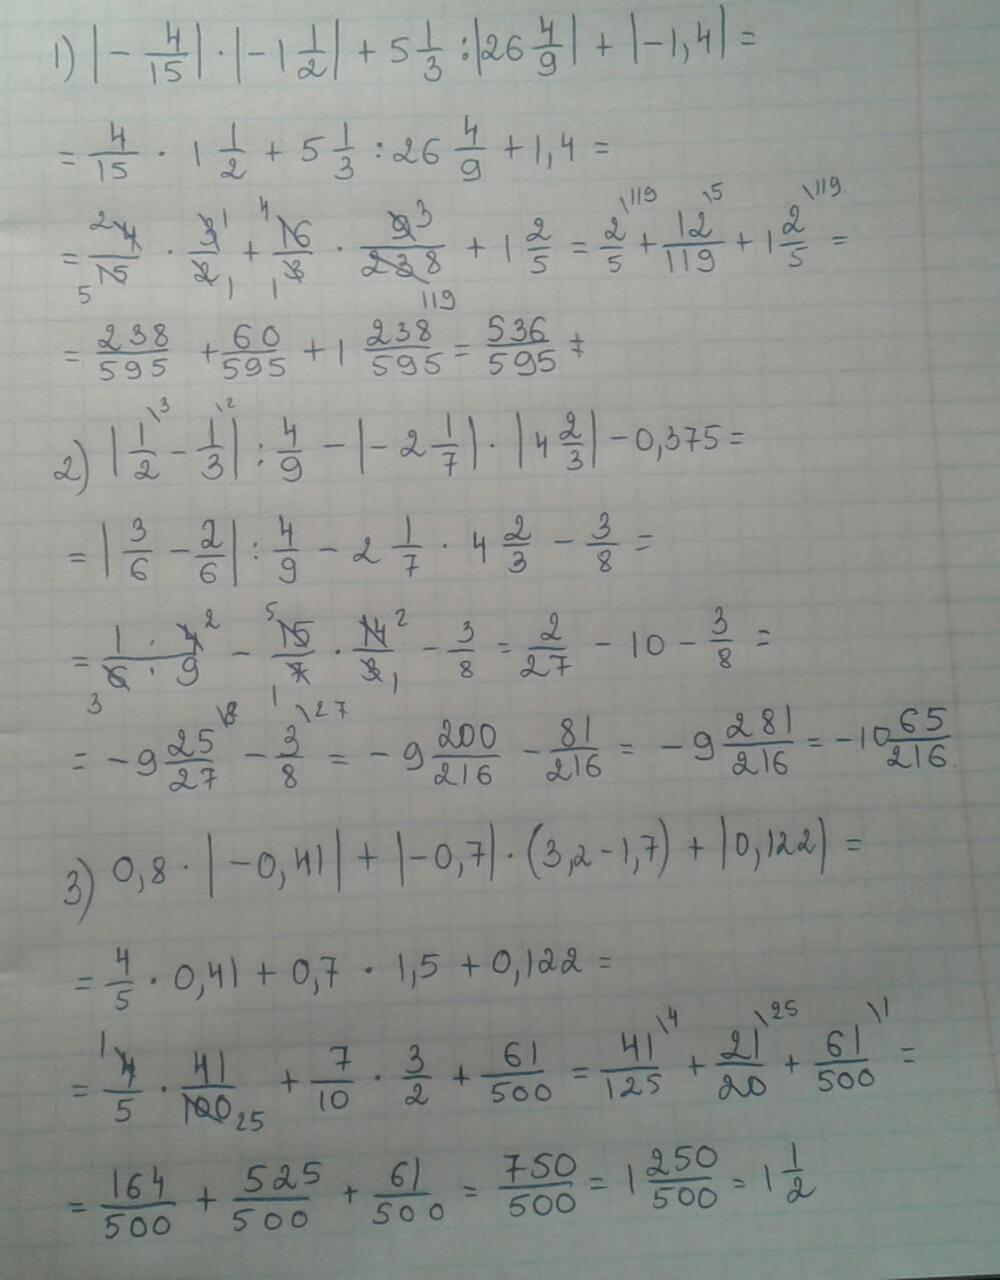 1) |- 4/15| · |-1 1/2| + 5 1/3 : |26 4/9| + |-1,4| =
= 4/15 · 1 1/2 + 5 1/3 : 26 4/9 + 1,4 =
= 2 4/15 5 · 3 1/2 1 + 4 16/3 1 · 9 3/238 119 + 1 2/5 = 2/5 \119 + 12/119 \5 + 1 2/5 \119 =
= 238/595 + 60/595 + 1 238/595 = 536/595
2) |1/2 \3 - 1/3 \2| : 4/9 - |-2 1/7| · |4 2/3| - 0,375 =
= |3/6 - 2/6| : 4/9 - 2 1/7 · 4 2/3 - 3/8 =
= 1 · 4 2/6 3 · 9 - 5 15/7 1 · 14 2/3 1 - 3/8 = 2/27 - 10 - 3/8 =
= -9 25/27 \8 - 3/8 \27 = -9 200/216 - 81/216 = -9 281/216 = -10 65/216
3) 0,8 · |-0,41| + |-0,7| · (3,2-1,7) + |0,122| =
= 4/5 · 0,41 + 0,7 · 1,5 + 0,122 =
= 1 4/5 · 41/100 25 + 7/10 · 3/2 + 61/500 = 41/125 \4 + 21/20 \25 + 61/500 \1 =
= 164/500 + 525/500 + 61/500 = 750/500 = 1 250/500 = 1 1/2